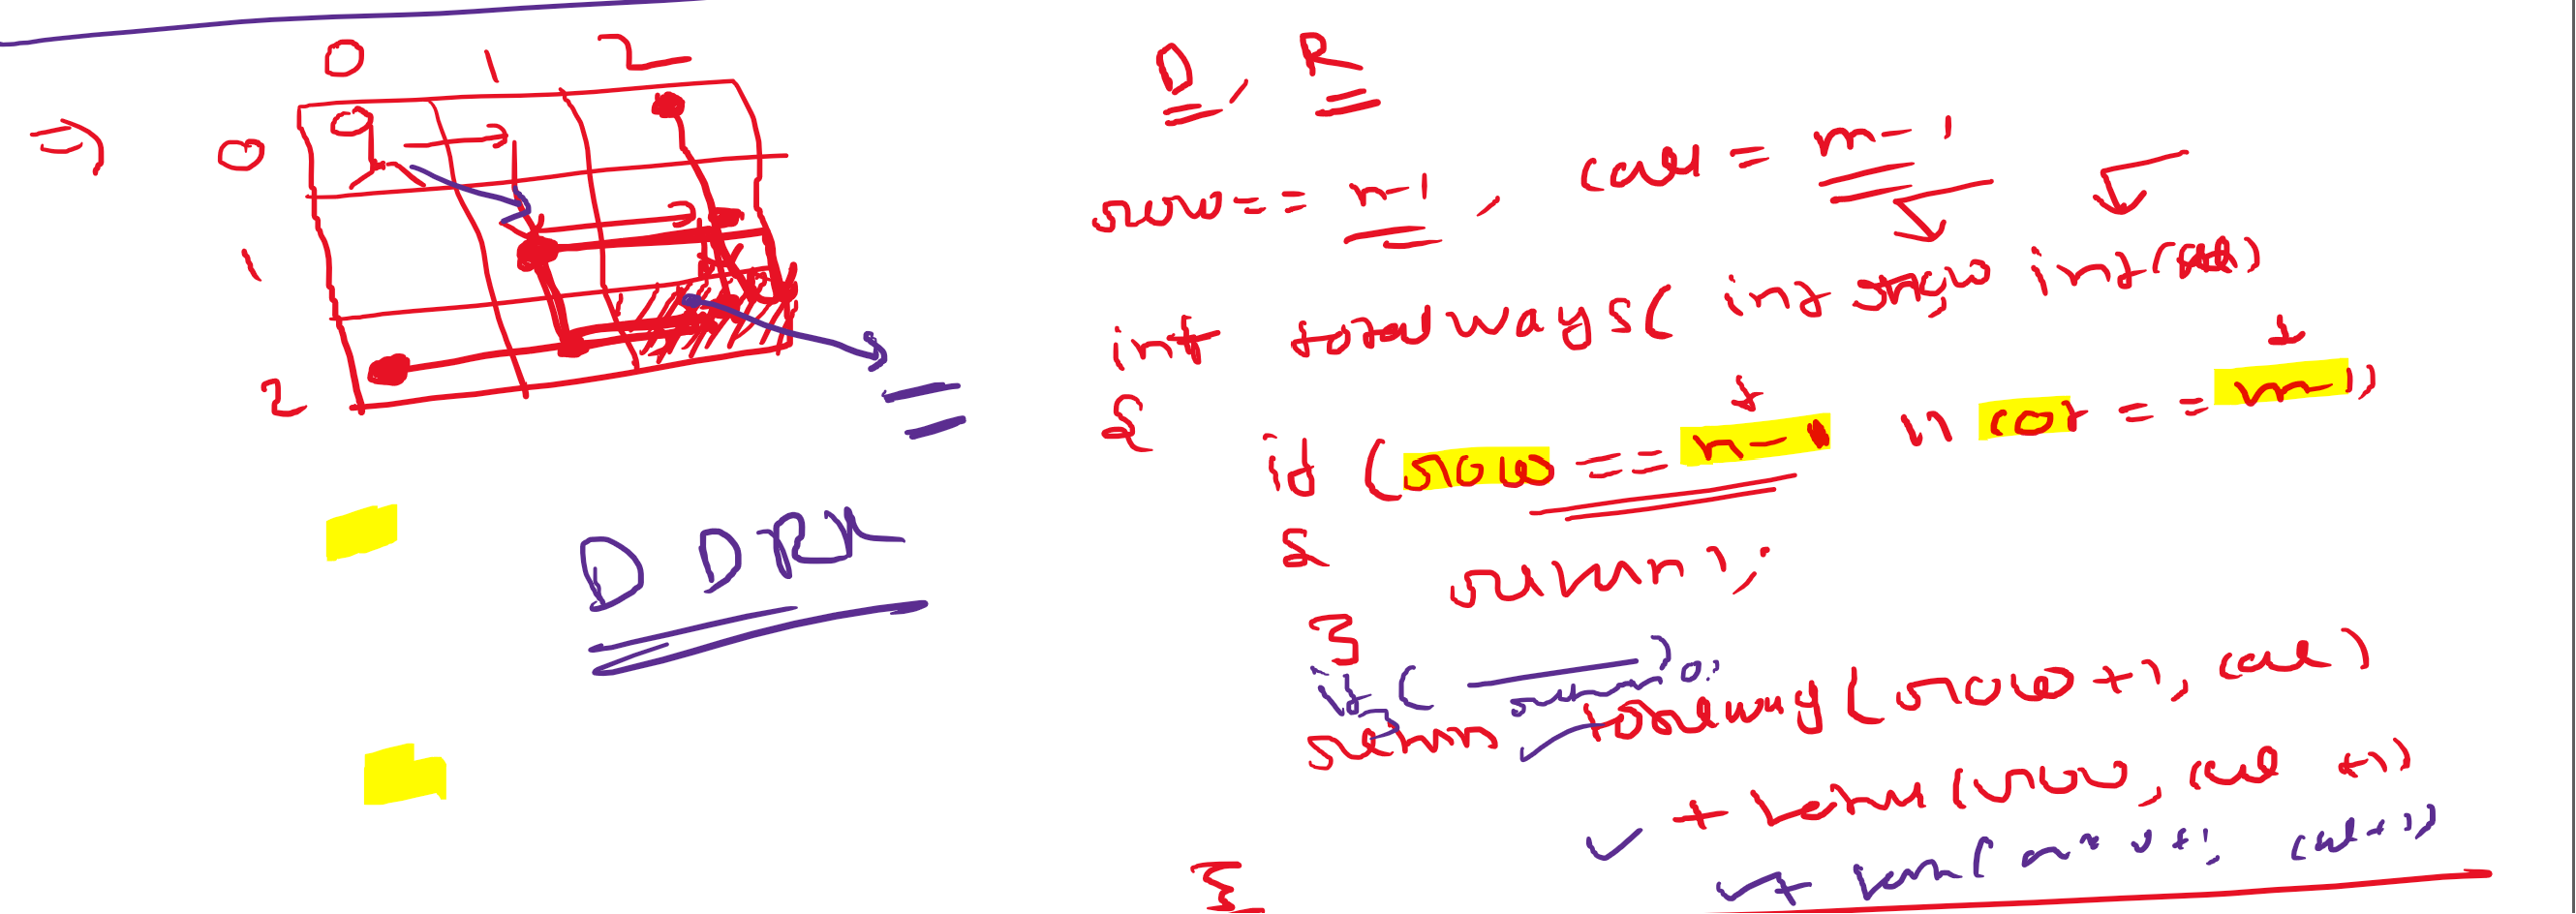 0 1 2
0
1
2
D, R
row == n-1, col = m-1
int totalways( int row, int col)
{
if (row == n-1 || col == m-1)
{
return 1;
}
if ( ) return 0;
return totalway(row+1, col)
+ (row, col+1)
+ (row+1, col+1)
}
D D R R